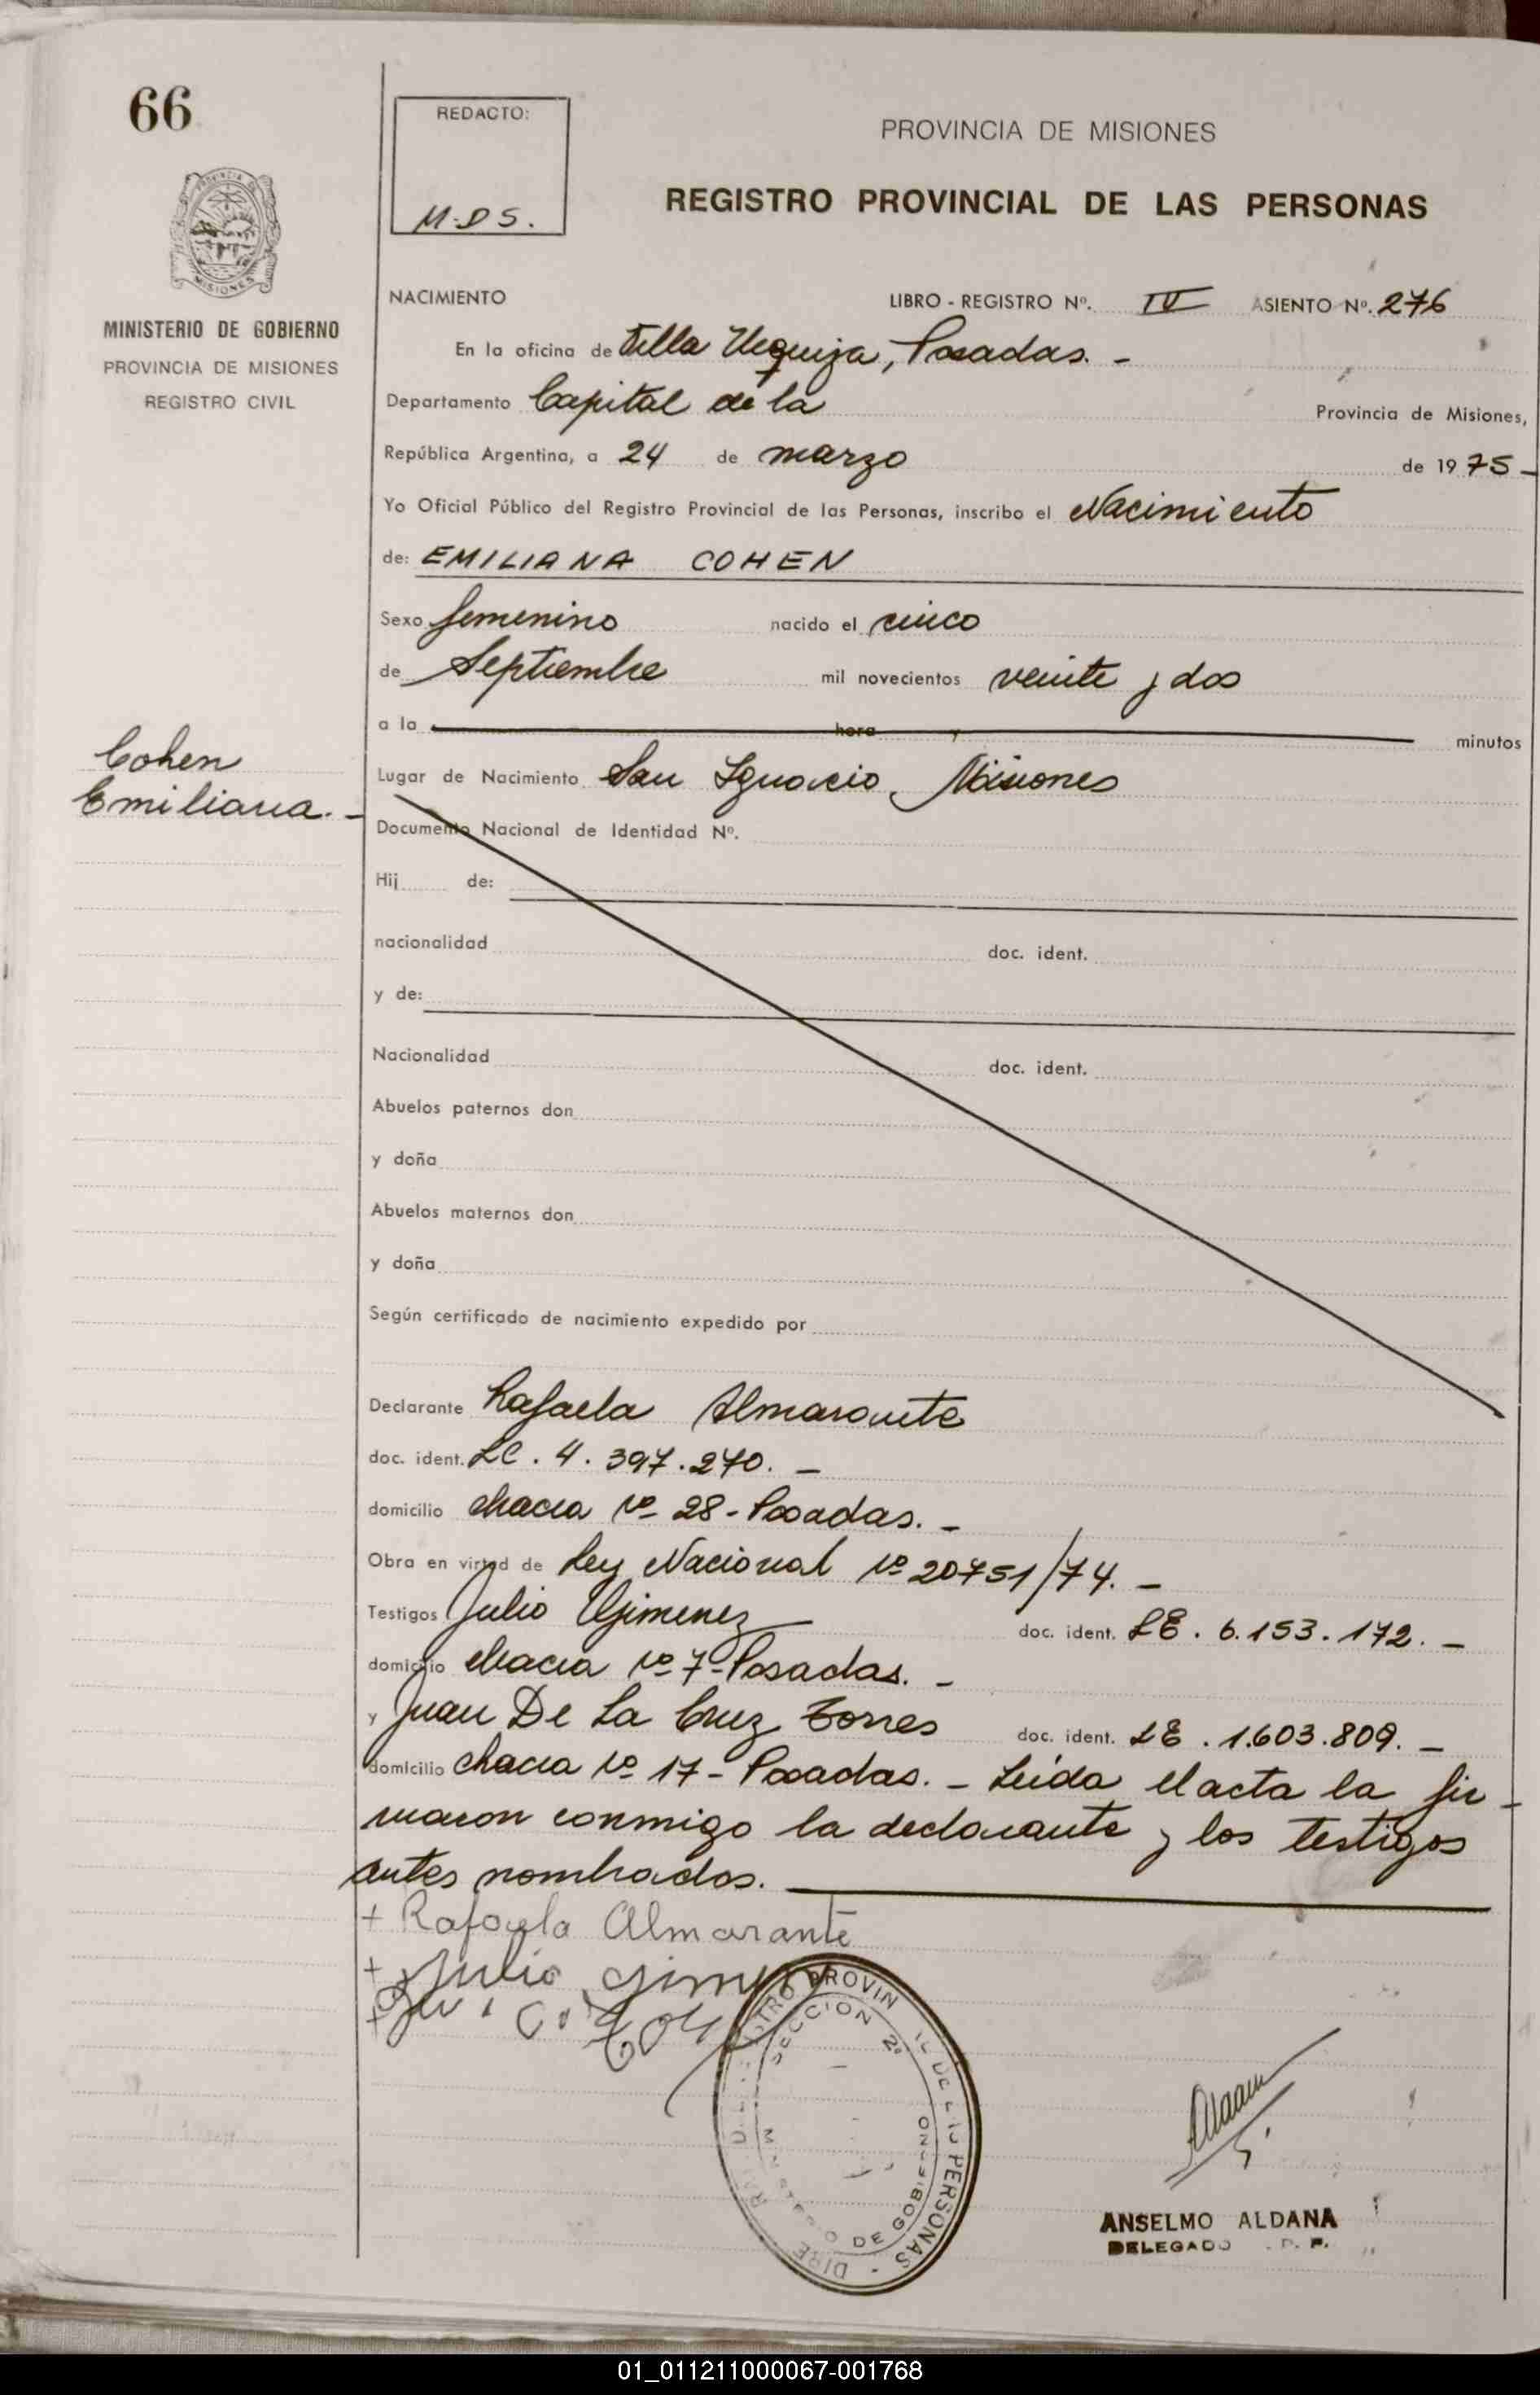 66
REDACTO:
M.D S.
PROVINCIA DE MISIONES
REGISTRO PROVINCIAL DE LAS PERSONAS
PROVINCIA DE
MISIONES
MINISTERIO DE GOBIERNO
PROVINCIA DE MISIONES
REGISTRO CIVIL
NACIMIENTO LIBRO - REGISTRO Nº. IV ASIENTO Nº. 276
En la oficina de Villa Urquiza, Posadas. -
Departamento Capital de la Provincia de Misiones,
República Argentina, a 24 de marzo de 1975 -
Yo Oficial Público del Registro Provincial de las Personas, inscribo el Nacimiento
de: EMILIANA COHEN
Sexo femenino nacido el cinco
de Septiembre mil novecientos veinte y dos
a la hora y minutos
Cohen
Emiliana. -
Lugar de Nacimiento San Ignacio, Misiones
Documento Nacional de Identidad Nº.
Hij de:
nacionalidad doc. ident.
y de:
Nacionalidad doc. ident.
Abuelos paternos don
y doña
Abuelos maternos don
y doña
Según certificado de nacimiento expedido por
Declarante Rafaela Almarante
doc. ident. LC. 4.397.270. -
domicilio chacra Nº 28 - Posadas. -
Obra en virtud de Ley Nacional Nº 20751/74. -
Testigos Julio Gimenez doc. ident. LE. 6.153.172. -
domicilio chacra Nº 7 - Posadas. -
y Juan De La Cruz Torres doc. ident. LE. 1.603.809. -
domicilio chacra Nº 17 - Posadas. - Leída el acta la fir-
maron conmigo la declarante y los testigos
antes nombrados.
+ Rafaela Almarante
+ Julio Gimenez
SECCION 2º
DE GOBIERNO
PERSONAS
ANSELMO ALDANA
DELEGADO
01_011211000067-001768